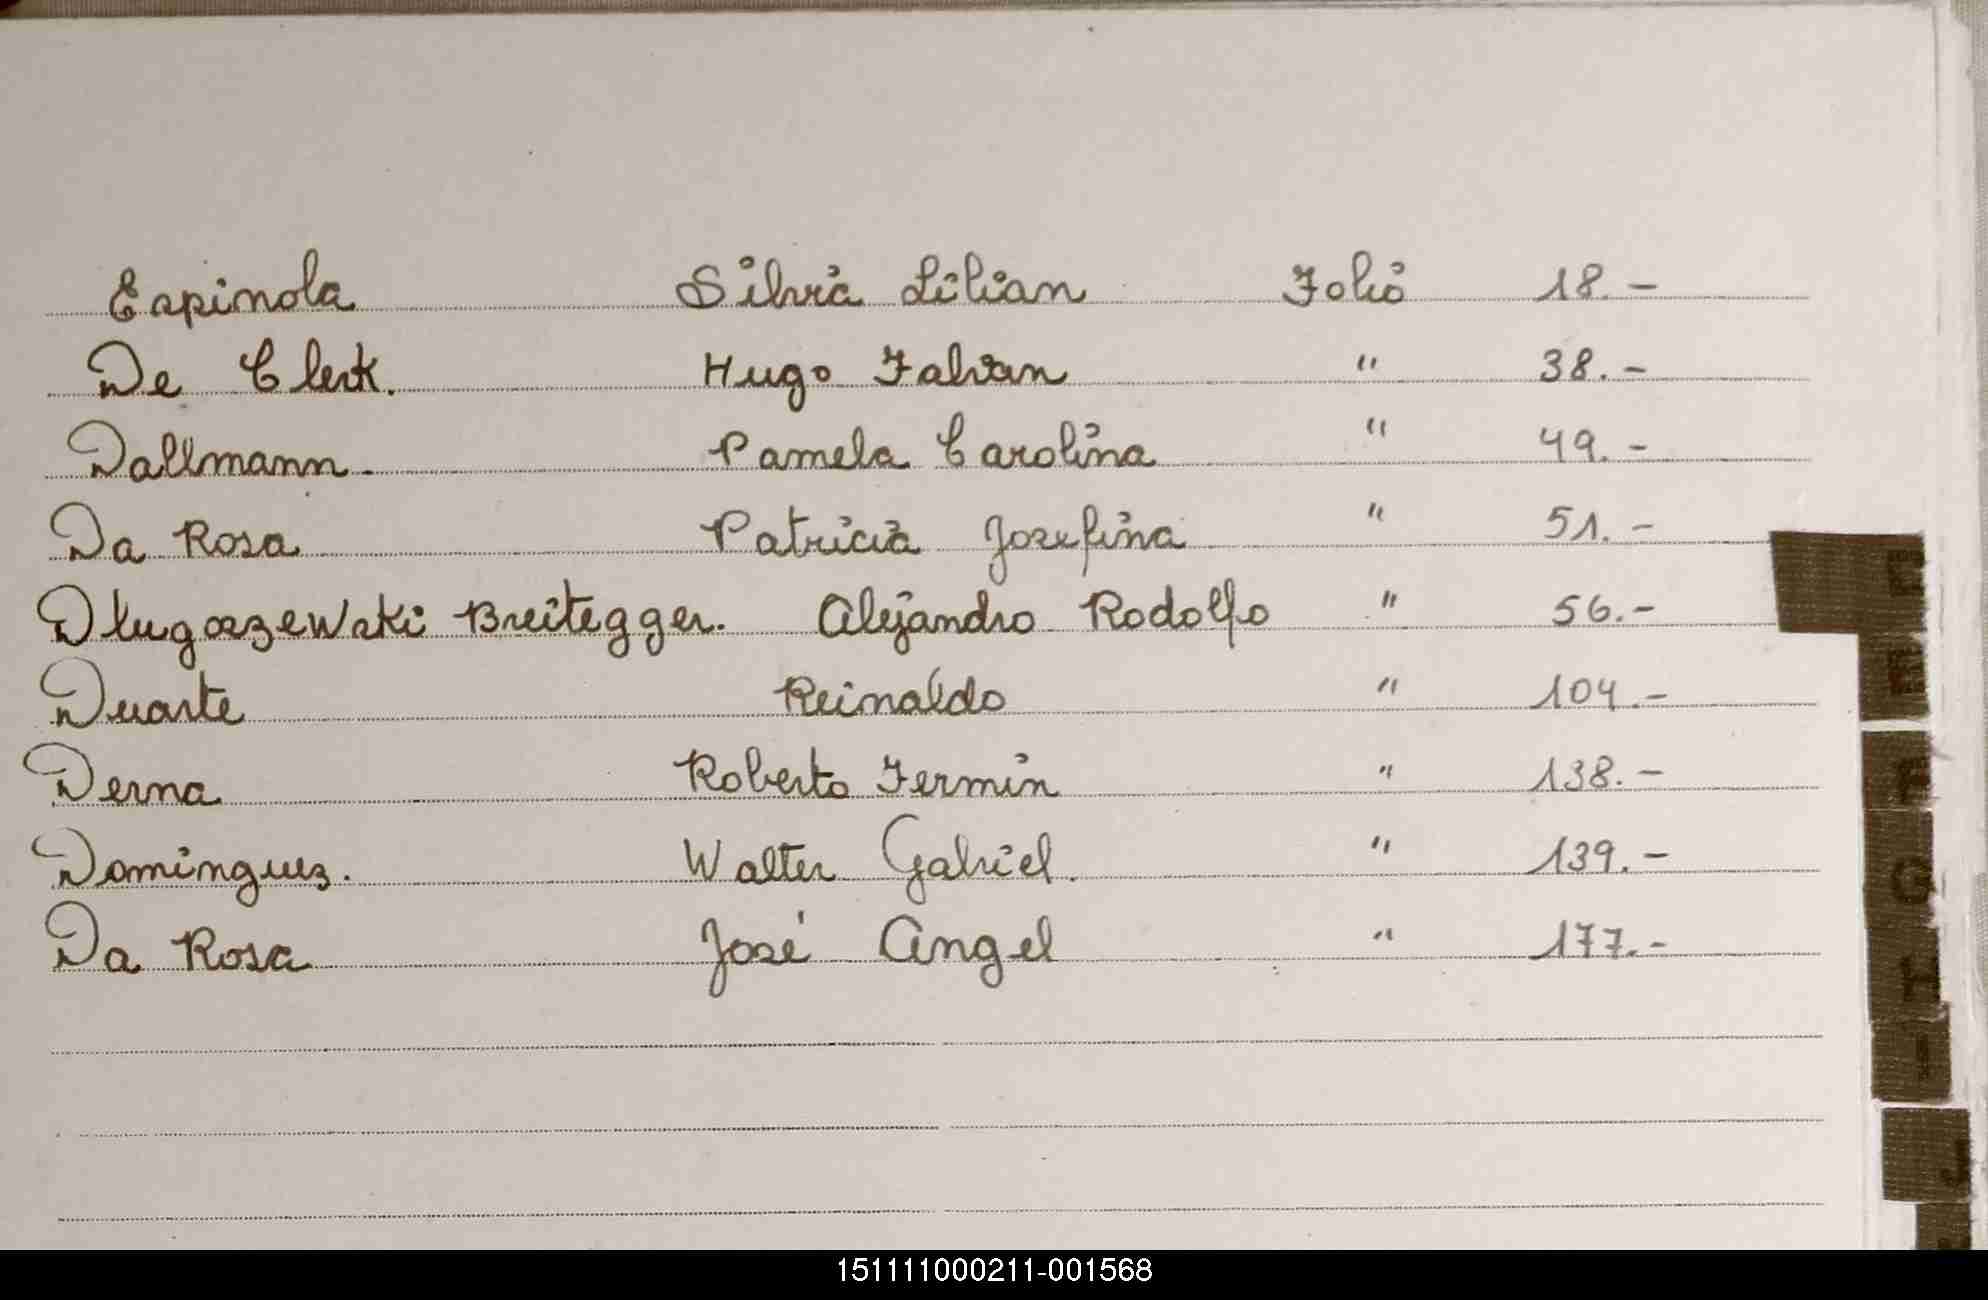 Espinola Silvia Lilian Folio 18.-
De Clerk. Hugo Fabian " 38.-
Dallmann. Pamela Carolina " 49.-
Da Rosa Patricia Josefina " 51.-
Dlugoszewski Breitegger. Alejandro Rodolfo " 56.-
Duarte Reinaldo " 104.-
Derna Roberto Fermin " 138.-
Dominguez. Walter Gabriel. " 139.-
Da Rosa José Angel " 177.-
E
F
G
H
I
J
151111000211-001568